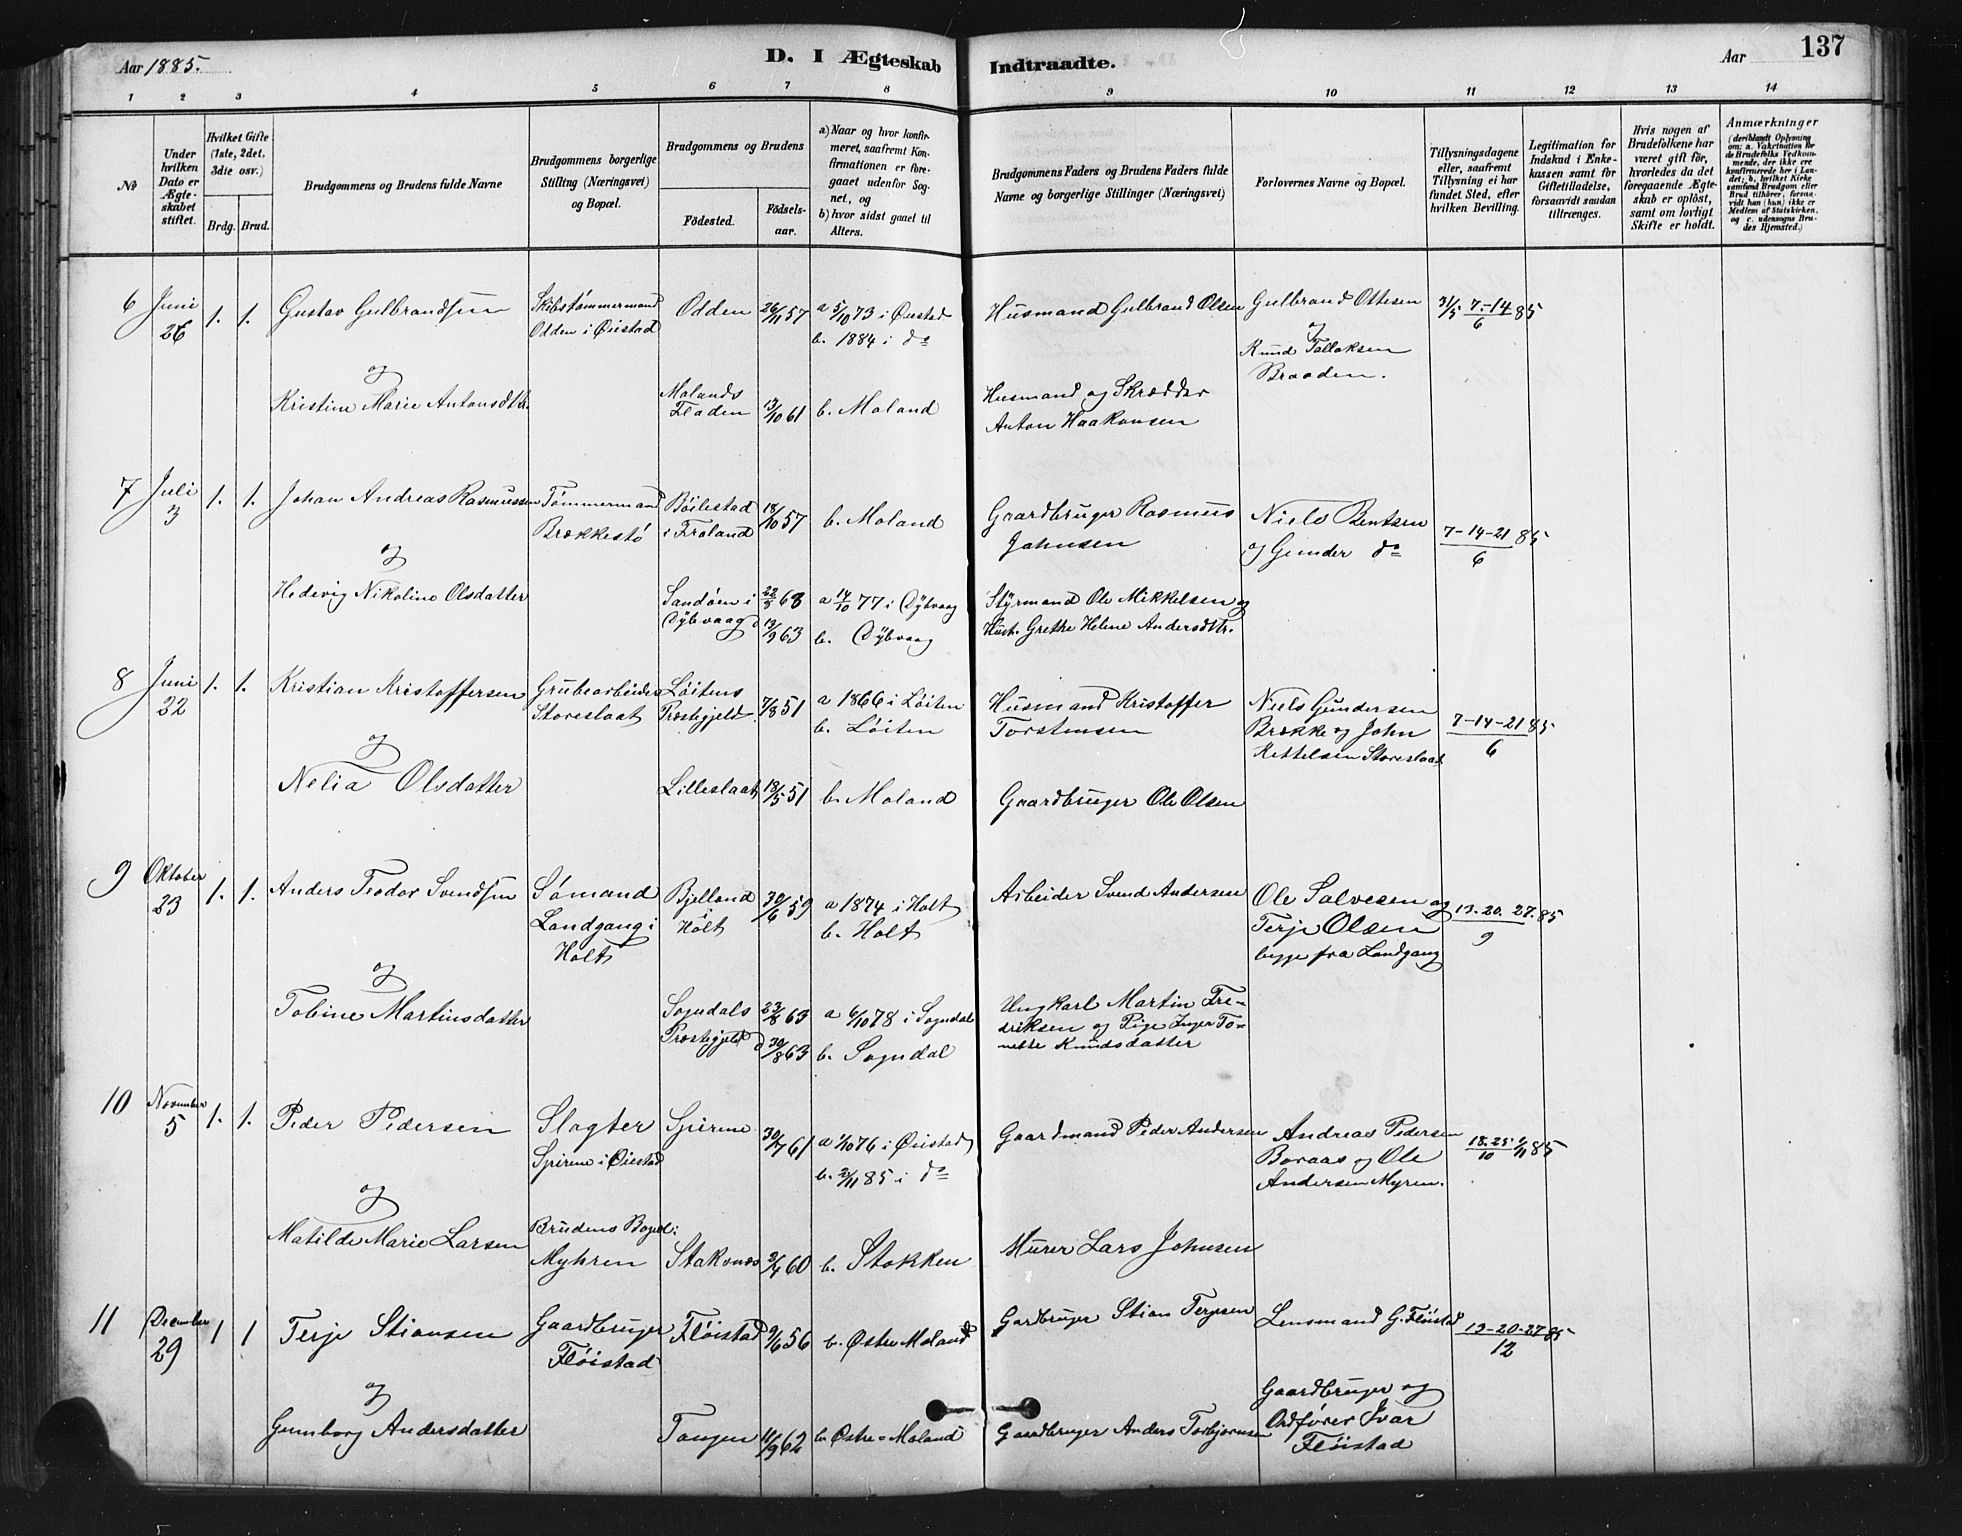 Aar 1885.
D. I Ægteskab Indtraadte.
Aar
137
1 2 3 4 5 6 7 8 9 10 11 12 13 14
No
Under hvilken Dato er Ægteskabet stiftet.
Hvilket Gifte (1ste, 2det, 3die osv.)
Brdg. Brud.
Brudgommens og Brudens fulde Navne
Brudgommens borgerlige Stilling (Næringsvei) og Bopæl.
Brudgommens og Brudens
Fødested.
Fødsels-aar.
a) Naar og hvor konfirmeret, saafremt Konfirmationen er foregaaet udenfor Sognet, og
b) hvor sidst gaaet til Alters.
Brudgommens Faders og Brudens Faders fulde Navne og borgerlige Stillinger (Næringsvei)
Forlovernes Navne og Bopæl.
Tillysningsdagene eller, saafremt Tillysning ei har fundet Sted, efter hvilken Bevilling.
Legitimation for Indskud i Enkekassen samt for Giftetilladelse, forsaavidt saadan tiltrænges.
Hvis nogen af Brudefolkene har været gift før, hvorledes da det foregaaende Ægteskab er opløst, samt om lovligt Skifte er holdt.
Anmærkninger
(deriblandt Oplysning om: a. Vakcination for de Brudefolks Vedkommende, der ikke ere konfirmerede her i Landet; b. hvilket Kirkesamfund Brudgom eller Brud tilhører, forsaavidt han (hun) ikke er Medlem af Statskirken, og c. udensogns Brudes Hjemsted.)
6 Juni 26 1. 1. Gustav Gulbrandsen Skibstømmermand Odden i Øiestad Odden 26/11 57 a 5/10 73 i Øiestad b. 1884 i do Husmand Gulbrand Olsen Gulbrand Ottesen og Knud Tallaksen Braaden. 31/5 7-14/6 85
og
Kristine Marie Antonsdtr. Molands Fladen 13/10 61 b. Moland Husmand og Skrædder Anton Haakonsen
7 Juli 3 1. 1. Johan Andreas Rasmussen Tømmermand Brækkestø Bøilestad i Froland 18/10 57 b. Moland Gaardbruger Rasmus Johnsen Niels Bentsen og Gunder do 7-14-21/6 85
og
Hedevig Nikoline Olsdatter Sandøen i Dybvaag 22/8 63 d 13/9 63 a 14/10 77 i Dybvaag b. Dybvaag Styrmand Ole Mikkelsen og Hust. Grethe Helene Andersdtr.
8 Juni 22 1. 1. Kristian Kristoffersen Grubearbeider Storeslaat Løitens Præstegjeld 7/8 51 a 1866 i Løiten b. Løiten Husmand Kristoffer Torstensen Niels Gundersen Brække og John Kettelsen Storeslaat 7-14-21/6 85
og
Nelia Olsdatter Lilleslaat 18/5 51 b. Moland Gaardbruger Ole Olsen
9 Oktober 23 1. 1. Anders Teodor Svendsen Sømand Landgang i Holt Bjelland i Holt 30/6 59 a 1874 i Holt b. Holt Arbeider Svend Andersen Ole Salvesen og Terje Olsen begge fra Landgang 13-20-27/9 85
og
Tobine Martinsdatter Sogndals Præstegjeld 23/8 63 d 30/8 63 a 6/10 78 i Sogndal b. Sogndal Ungkarl Martin Fredriksen og Pige Inger Tonette Knudsdatter
10 November 5 1. 1. Peder Pedersen Slagter Spirene i Øiestad Spirene 30/7 61 a 1/10 76 i Øiestad b. 2/11 85 i do Gaardmand Peder Andersen Andreas Pedersen Boraas og Ole Andersen Myren. 18-25/10 1/11 85
og
Matilde Marie Larsen Brudens Bopæl: Myhren Staksnes 3/4 60 b. Stokken Murer Lars Johnsen
11 December 29 1 1 Terje Stiansen Gaardbruger Fløistad Fløistad 9/6 56 b. Østre Moland Gardbruger Stian Terjesen Lensmand G. Fløistad 13-20-27/12 85
og
Gunborg Andersdatter Tangen 11/9 62 b. Østre-Moland Gaardbruger Anders Torbjørnsen Gaardbruger og Ordfører Ivar Fløistad